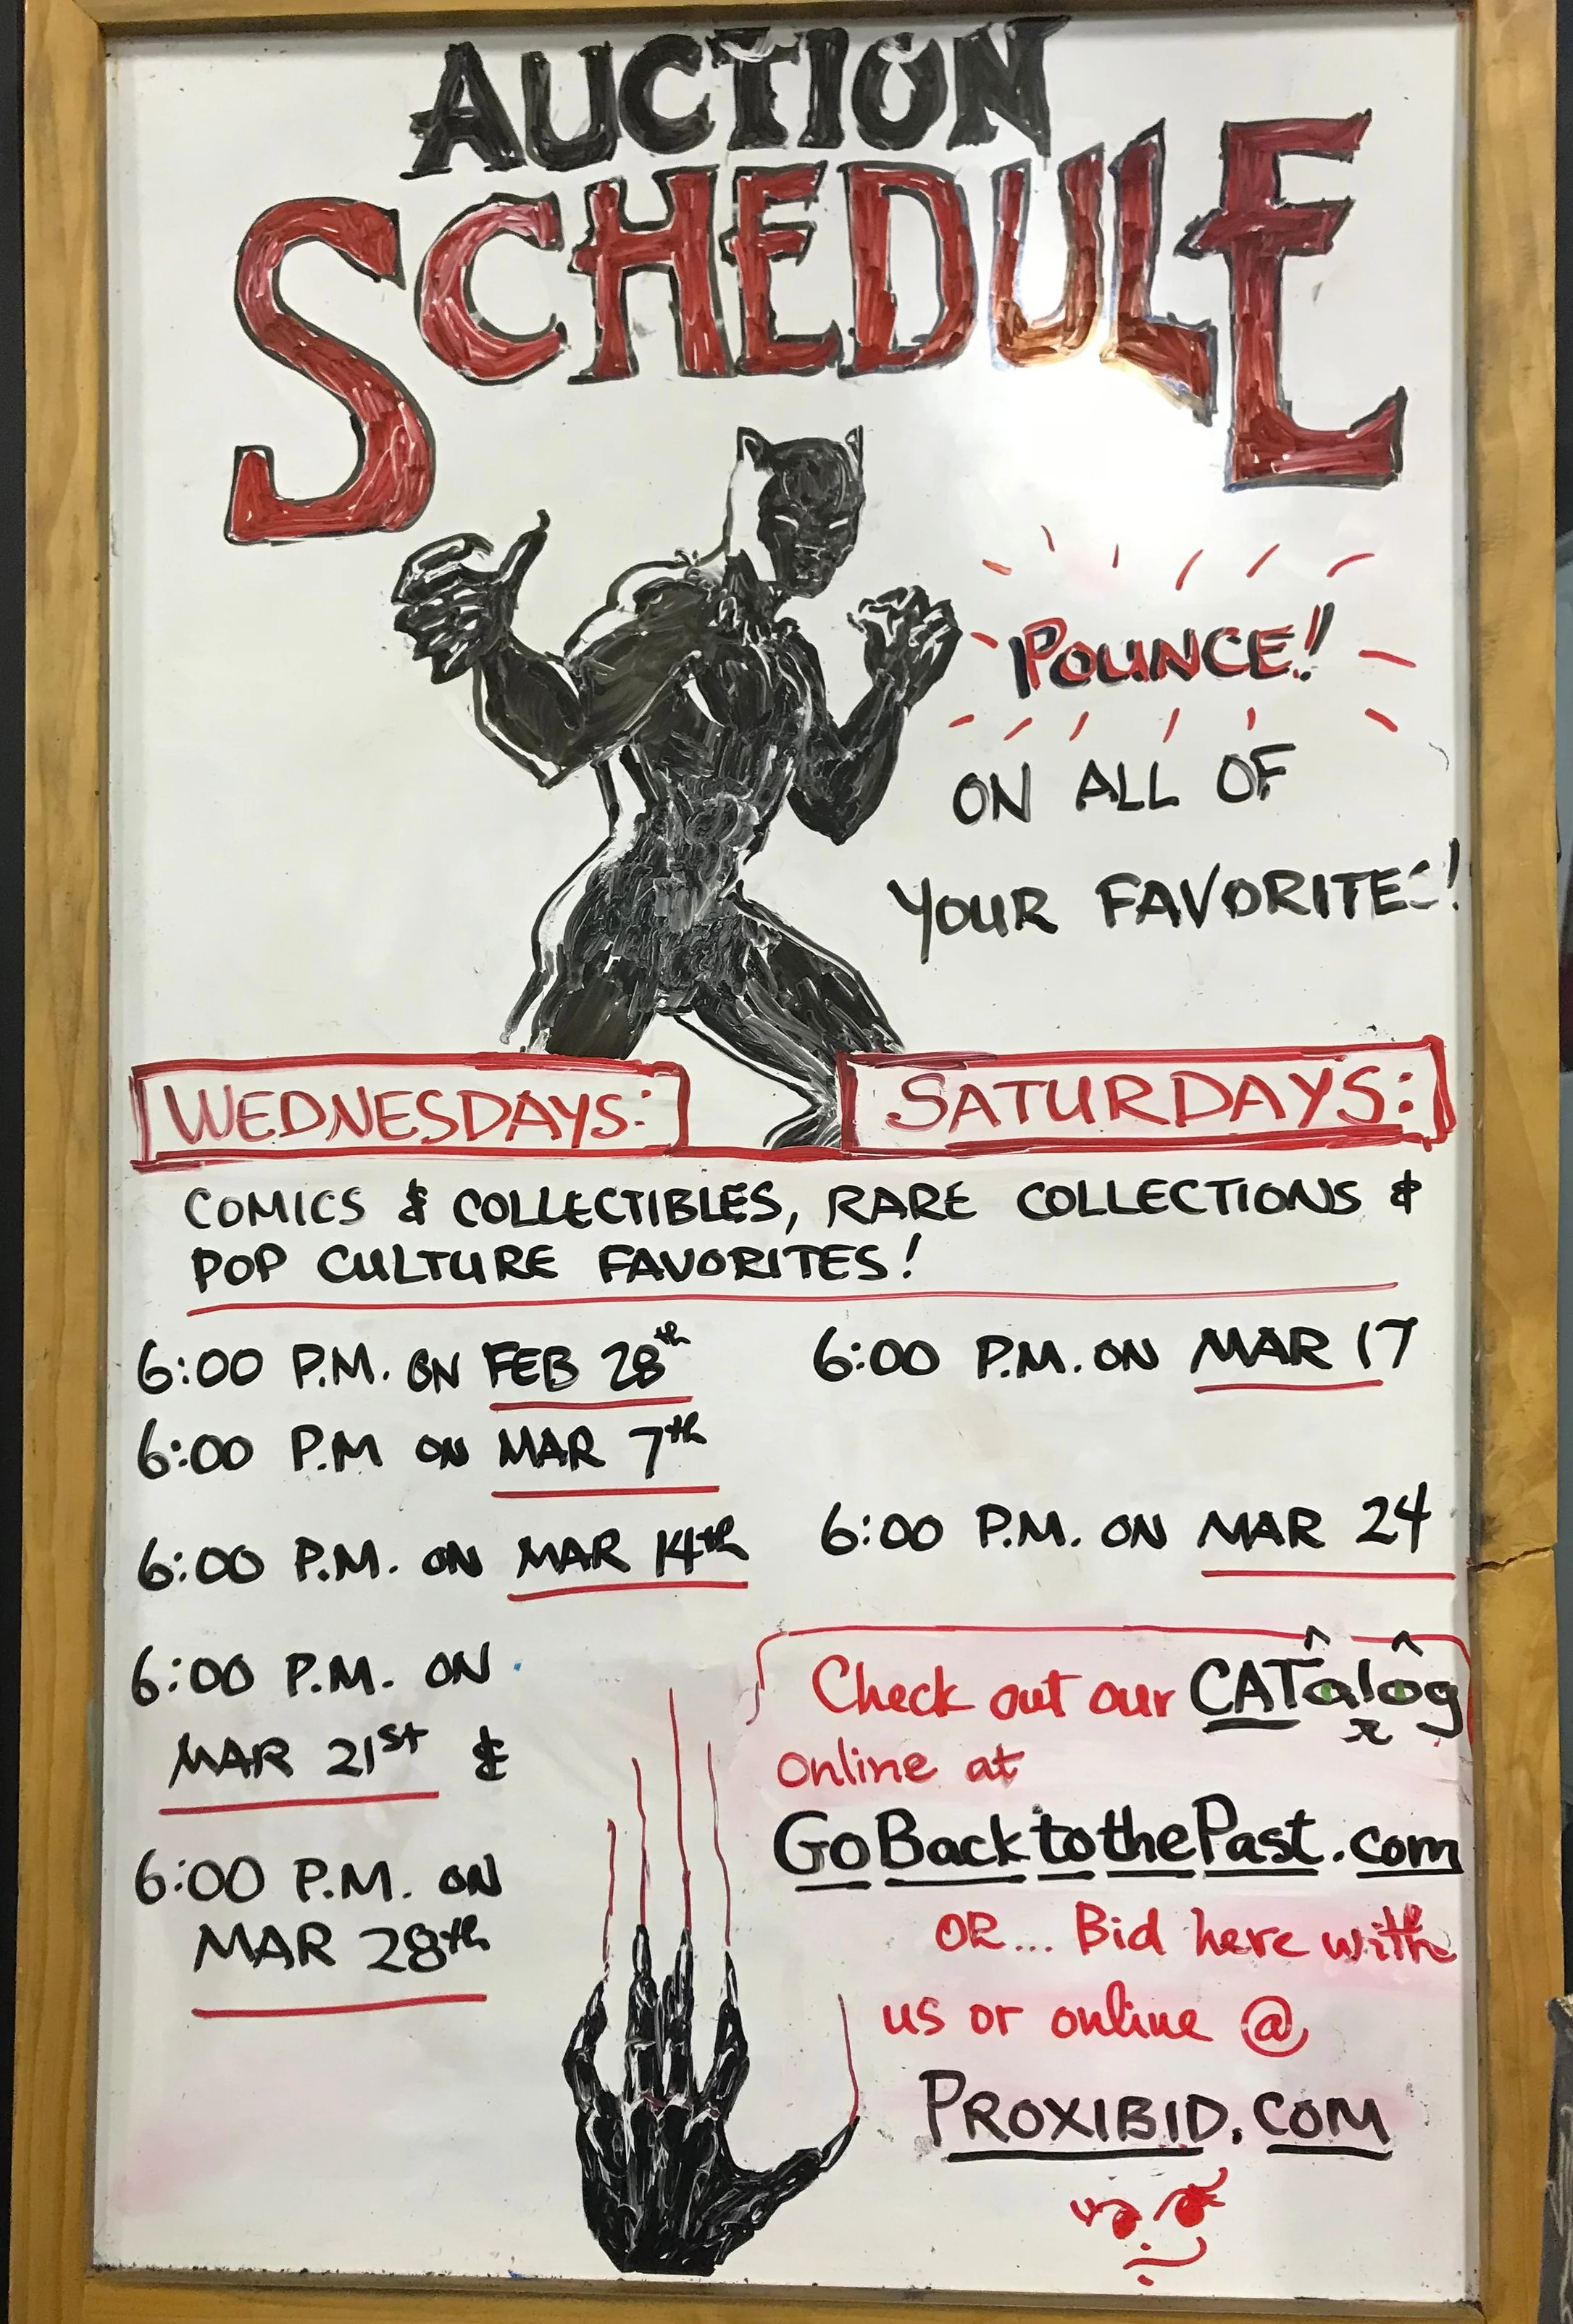 AUCTION
SCHEDULE
POUNCE!
ON ALL OF
YOUR FAVORITES!
WEDNESDAYS:
SATURDAYS:
COMICS & COLLECTIBLES, RARE COLLECTIONS &
POP CULTURE FAVORITES!
6:00 P.M. ON FEB 28th
6:00 P.M ON MAR 7th
6:00 P.M. ON MAR 14th
6:00 P.M. ON
MAR 21st &
6:00 P.M. ON
MAR 28th
6:00 P.M. ON MAR 17
6:00 P.M. ON MAR 24
Check out our CATalog
online at
GoBacktothePast.com
OR... Bid here with
us or online @
PROXIBID.COM